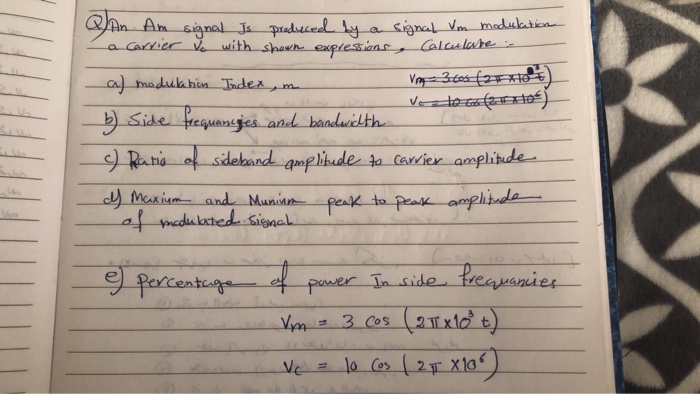 Q) An Am signal Is produced by a signal Vm modulation
a carrier Vc with shown expressions, Calculate :-
a) modulation Index, m
Vm = 3 cos (2π x 10³ t)
Vc = 10 cos (2π x 10⁶)
b) Side frequancies and bandwidth
c) Ratio of sideband amplitude to carrier amplitude
d) Maxium and Munium peak to peak amplitude
of modulated signal
e) percentage of power In side frequancies
Vm = 3 cos (2π x 10³ t)
Vc = 10 Cos (2π x 10⁶)